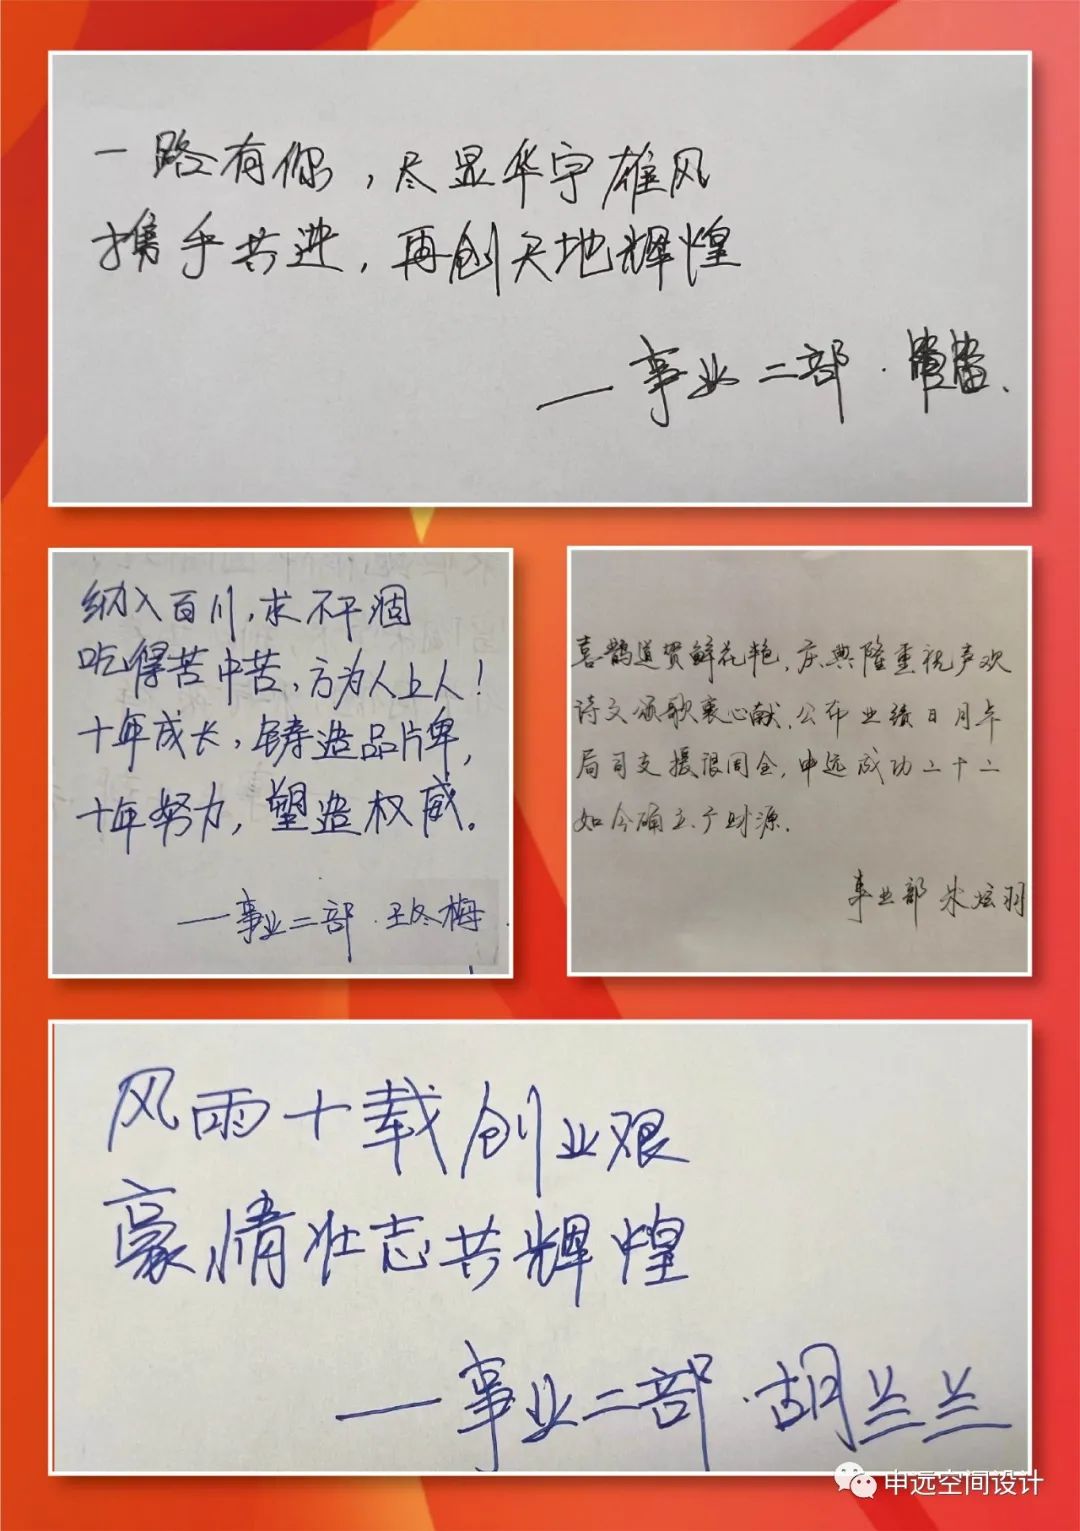 一路有你，尽显华宇雄风
携手共进，再创天地辉煌
—事业二部·
纳入百川，求不干涸
吃得苦中苦，方为人上人！
十年成长，铸造品牌，
十年努力，塑造权威。
—事业二部·王冬梅
喜鹊道贺鲜花艳，庆典隆重祝声欢
诗文颂歌衷心献，公布业绩日月卓
局司支援很周全，申远成功二十二
如今确立广财源。
事业部 朱炫羽
风雨十载创业艰
豪情壮志共辉煌
—事业二部·胡兰兰
申远空间设计